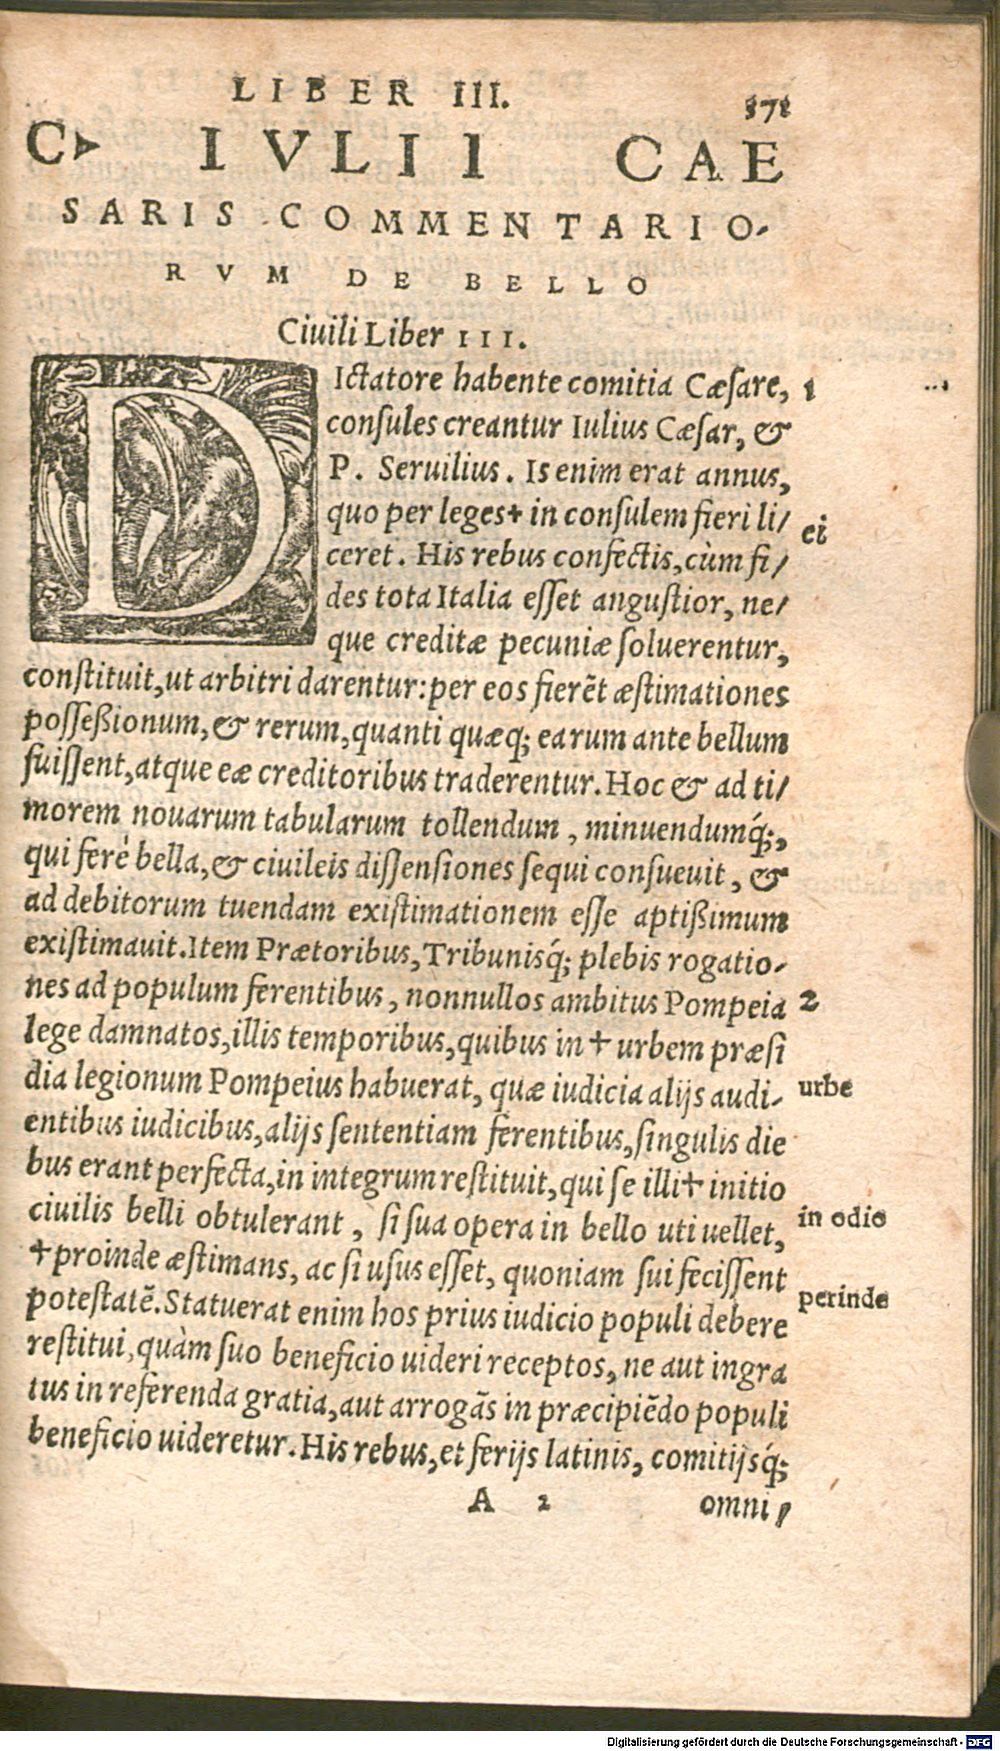 LIBER III. 371
C. IVLII CAE
SARIS COMMENTARIO-
RVM DE BELLO
Ciuili Liber III.
DIctatore habente comitia Cæsare, 1
consules creantur Iulius Cæsar, &
P. Seruilius. Is enim erat annus,
quo per leges+ in consulem fieri li/ ei
ceret. His rebus confectis, cùm fi/
des tota Italia esset angustior, ne/
que creditæ pecuniæ soluerentur,
constituit, ut arbitri darentur: per eos fierẽt æstimationes
posseßionum, & rerum, quanti quæq; earum ante bellum
fuissent, atque eæ creditoribus traderentur. Hoc & ad ti/
morem nouarum tabularum tollendum, minuendumq́;,
qui ferè bella, & ciuileis dissensiones sequi consueuit, &
ad debitorum tuendam existimationem esse aptißimum
existimauit. Item Prætoribus, Tribunisq́; plebis rogatio-
nes ad populum ferentibus, nonnullos ambitus Pompeia 2
lege damnatos, illis temporibus, quibus in + urbem præsi
dia legionum Pompeius habuerat, quæ iudicia alijs audi- urbe
entibus iudicibus, alijs sententiam ferentibus, singulis die
bus erant perfecta, in integrum restituit, qui se illi+ initio
ciuilis belli obtulerant, si sua opera in bello uti uellet, in odio
+proinde æstimans, ac si usus esset, quoniam sui fecissent
potestatẽ. Statuerat enim hos prius iudicio populi debere perinde
restitui, quàm suo beneficio uideri receptos, ne aut ingra
tus in referenda gratia, aut arrogãs in præcipiẽdo populi
beneficio uideretur. His rebus, et ferijs latinis, comitijsq́;
A 2 omni/
Digitalisierung gefördert durch die Deutsche Forschungsgemeinschaft - DFG